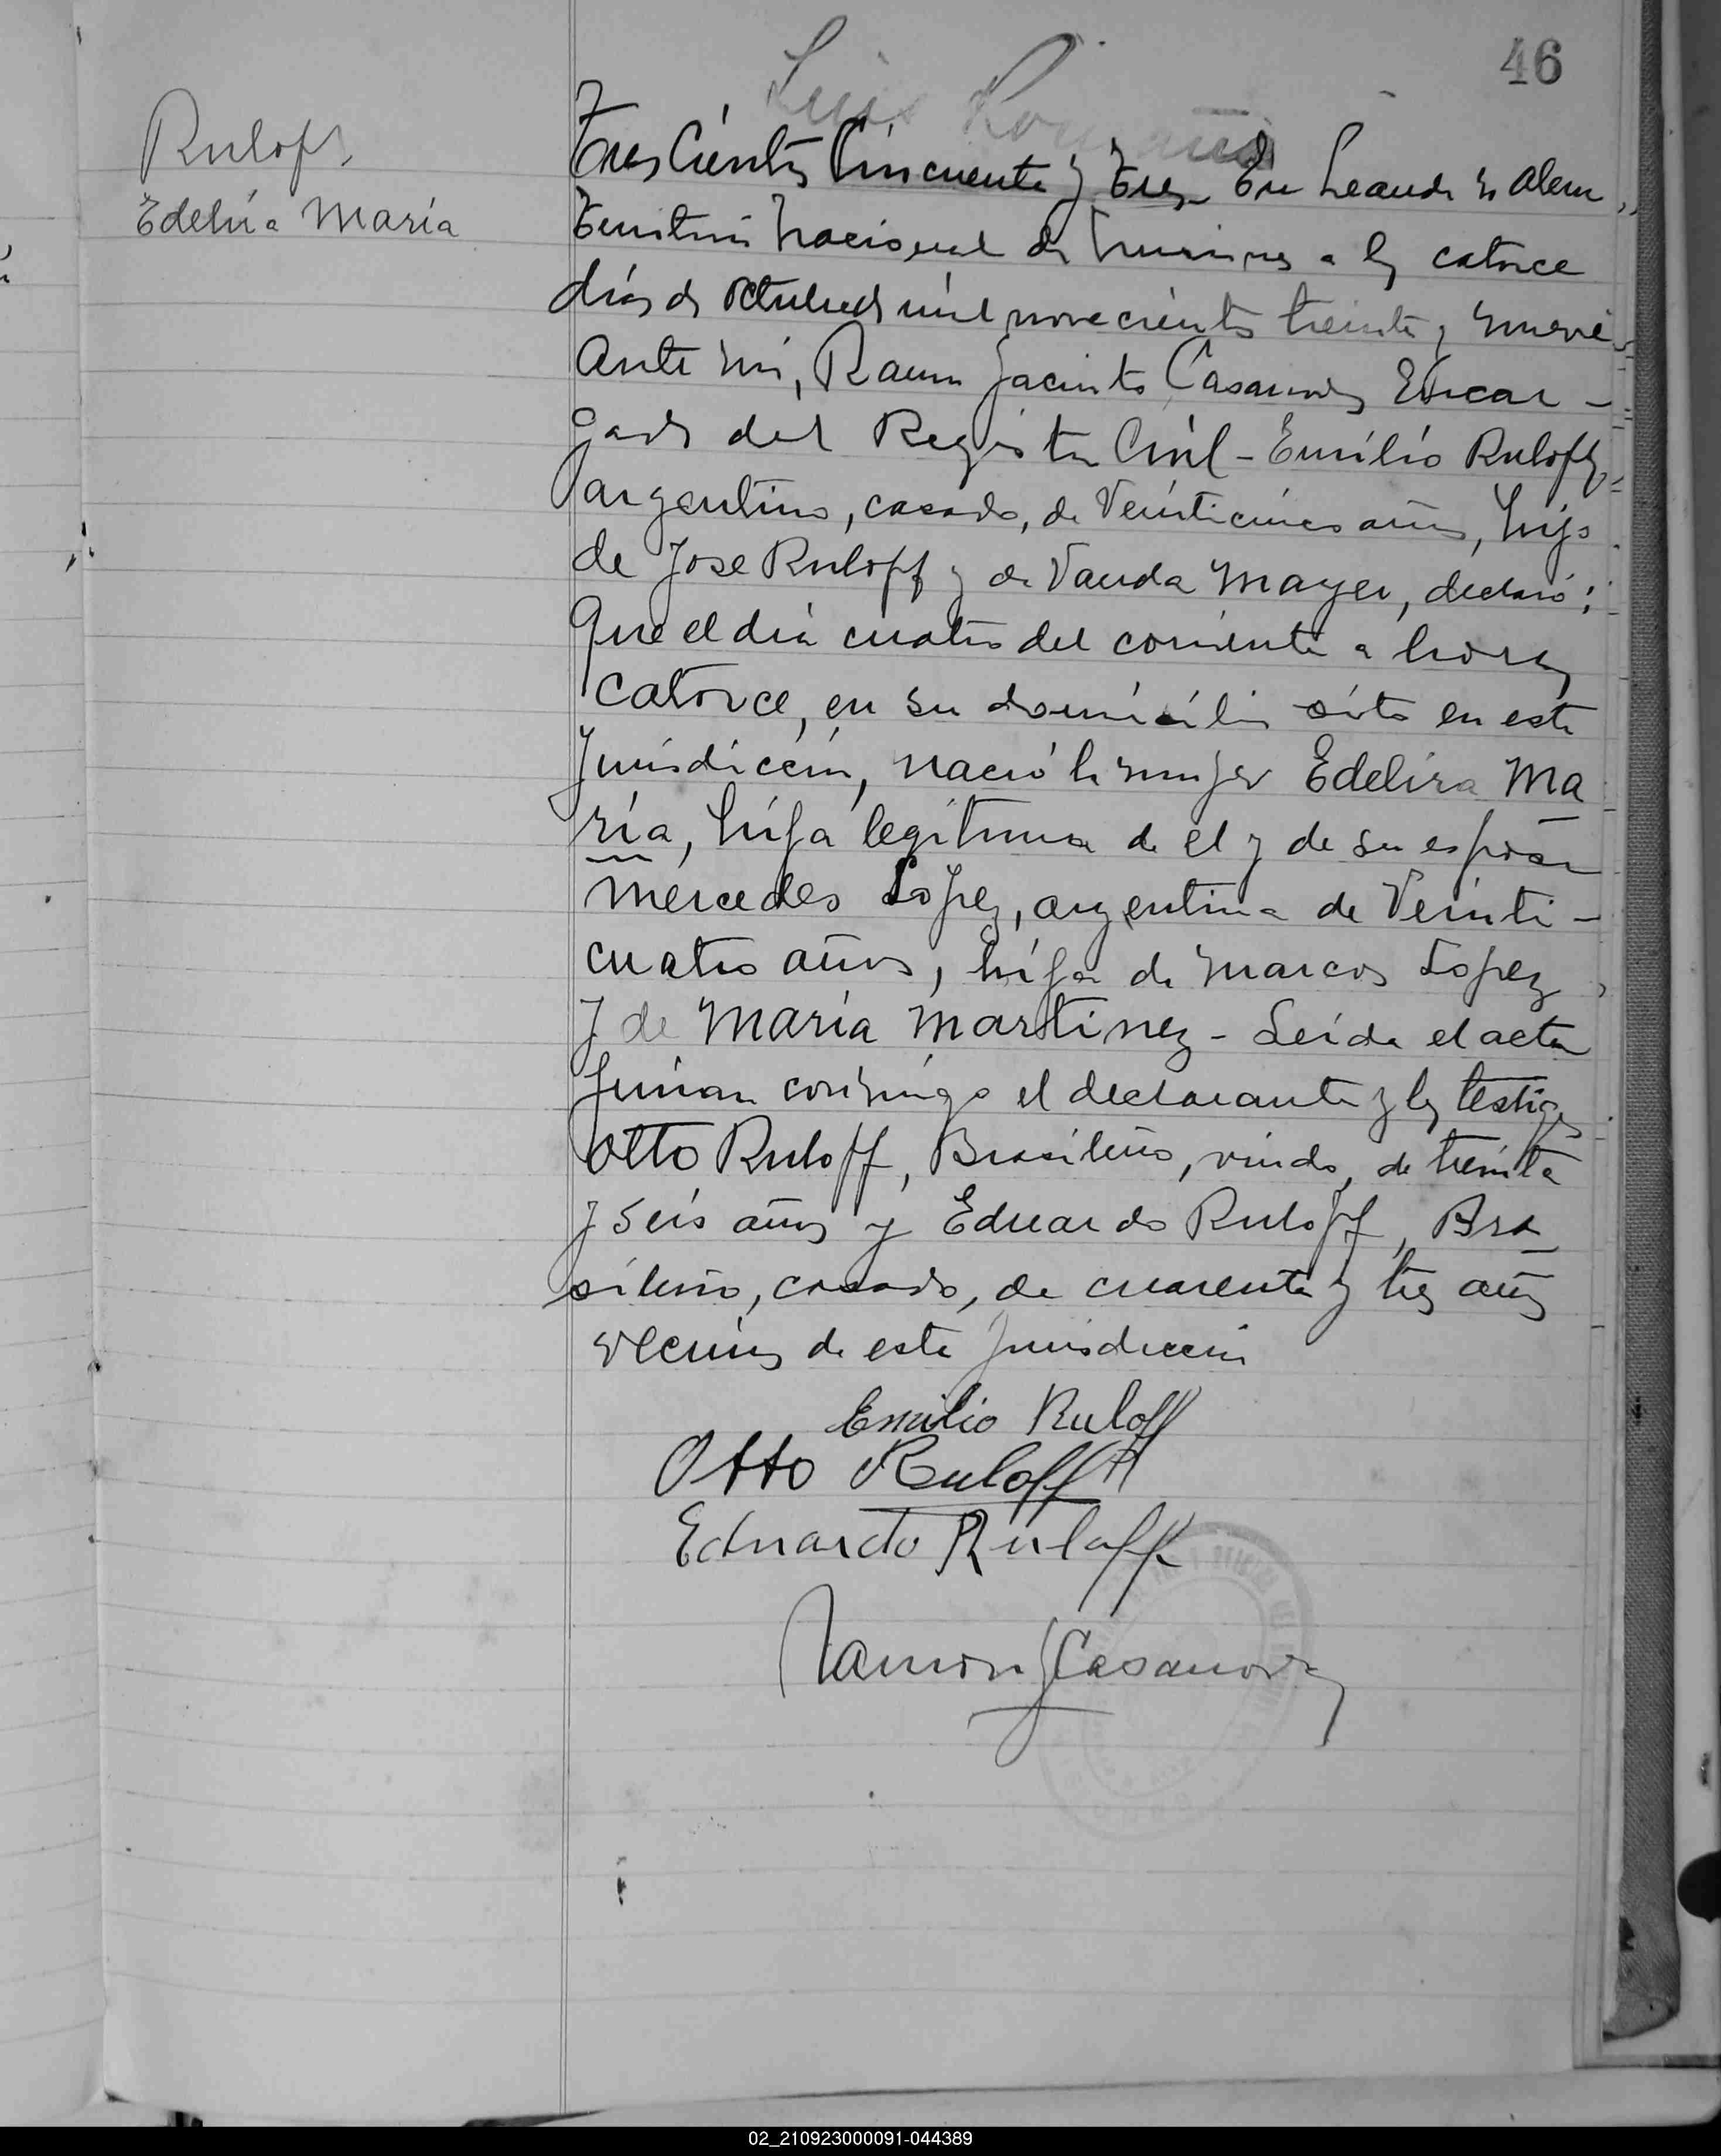 46
Luis Romano
Ruloff
Edelira Maria
Tres Cientos Cincuenta y Tres En Leandro N Alem,
Territorio Nacional de Misiones a los catorce
días de Octubre de mil novecientos treinta y nueve
Ante mi, Ramon Jacinto Casanova, Encar-
gado del Registro Civil - Emilio Ruloff,
argentino, casado, de Veinticinco años, hijo
de Jose Ruloff y de Vanda Mayer, declaró:
Que el día cuatro del corriente a horas
catorce, en su domicilio sito en esta
Jurisdiccion, nació la mujer Edelira Ma
ría, hija legitima de el y de su esposa
Mercedes Lopez, argentina de Veinti-
cuatro años, hija de Marcos Lopez
y de María Martinez - Leida el acta
firman conmigo el declarante y los testigos
Otto Ruloff, Brasileño, viudo, de treinta
y seis años y Eduardo Ruloff, Bra
sileño, casado, de cuarenta y tres años
vecinos de esta jurisdiccion
Emilio Ruloff
Otto Ruloff
Eduardo Ruloff
Ramon J Casanova
02_210923000091-044389